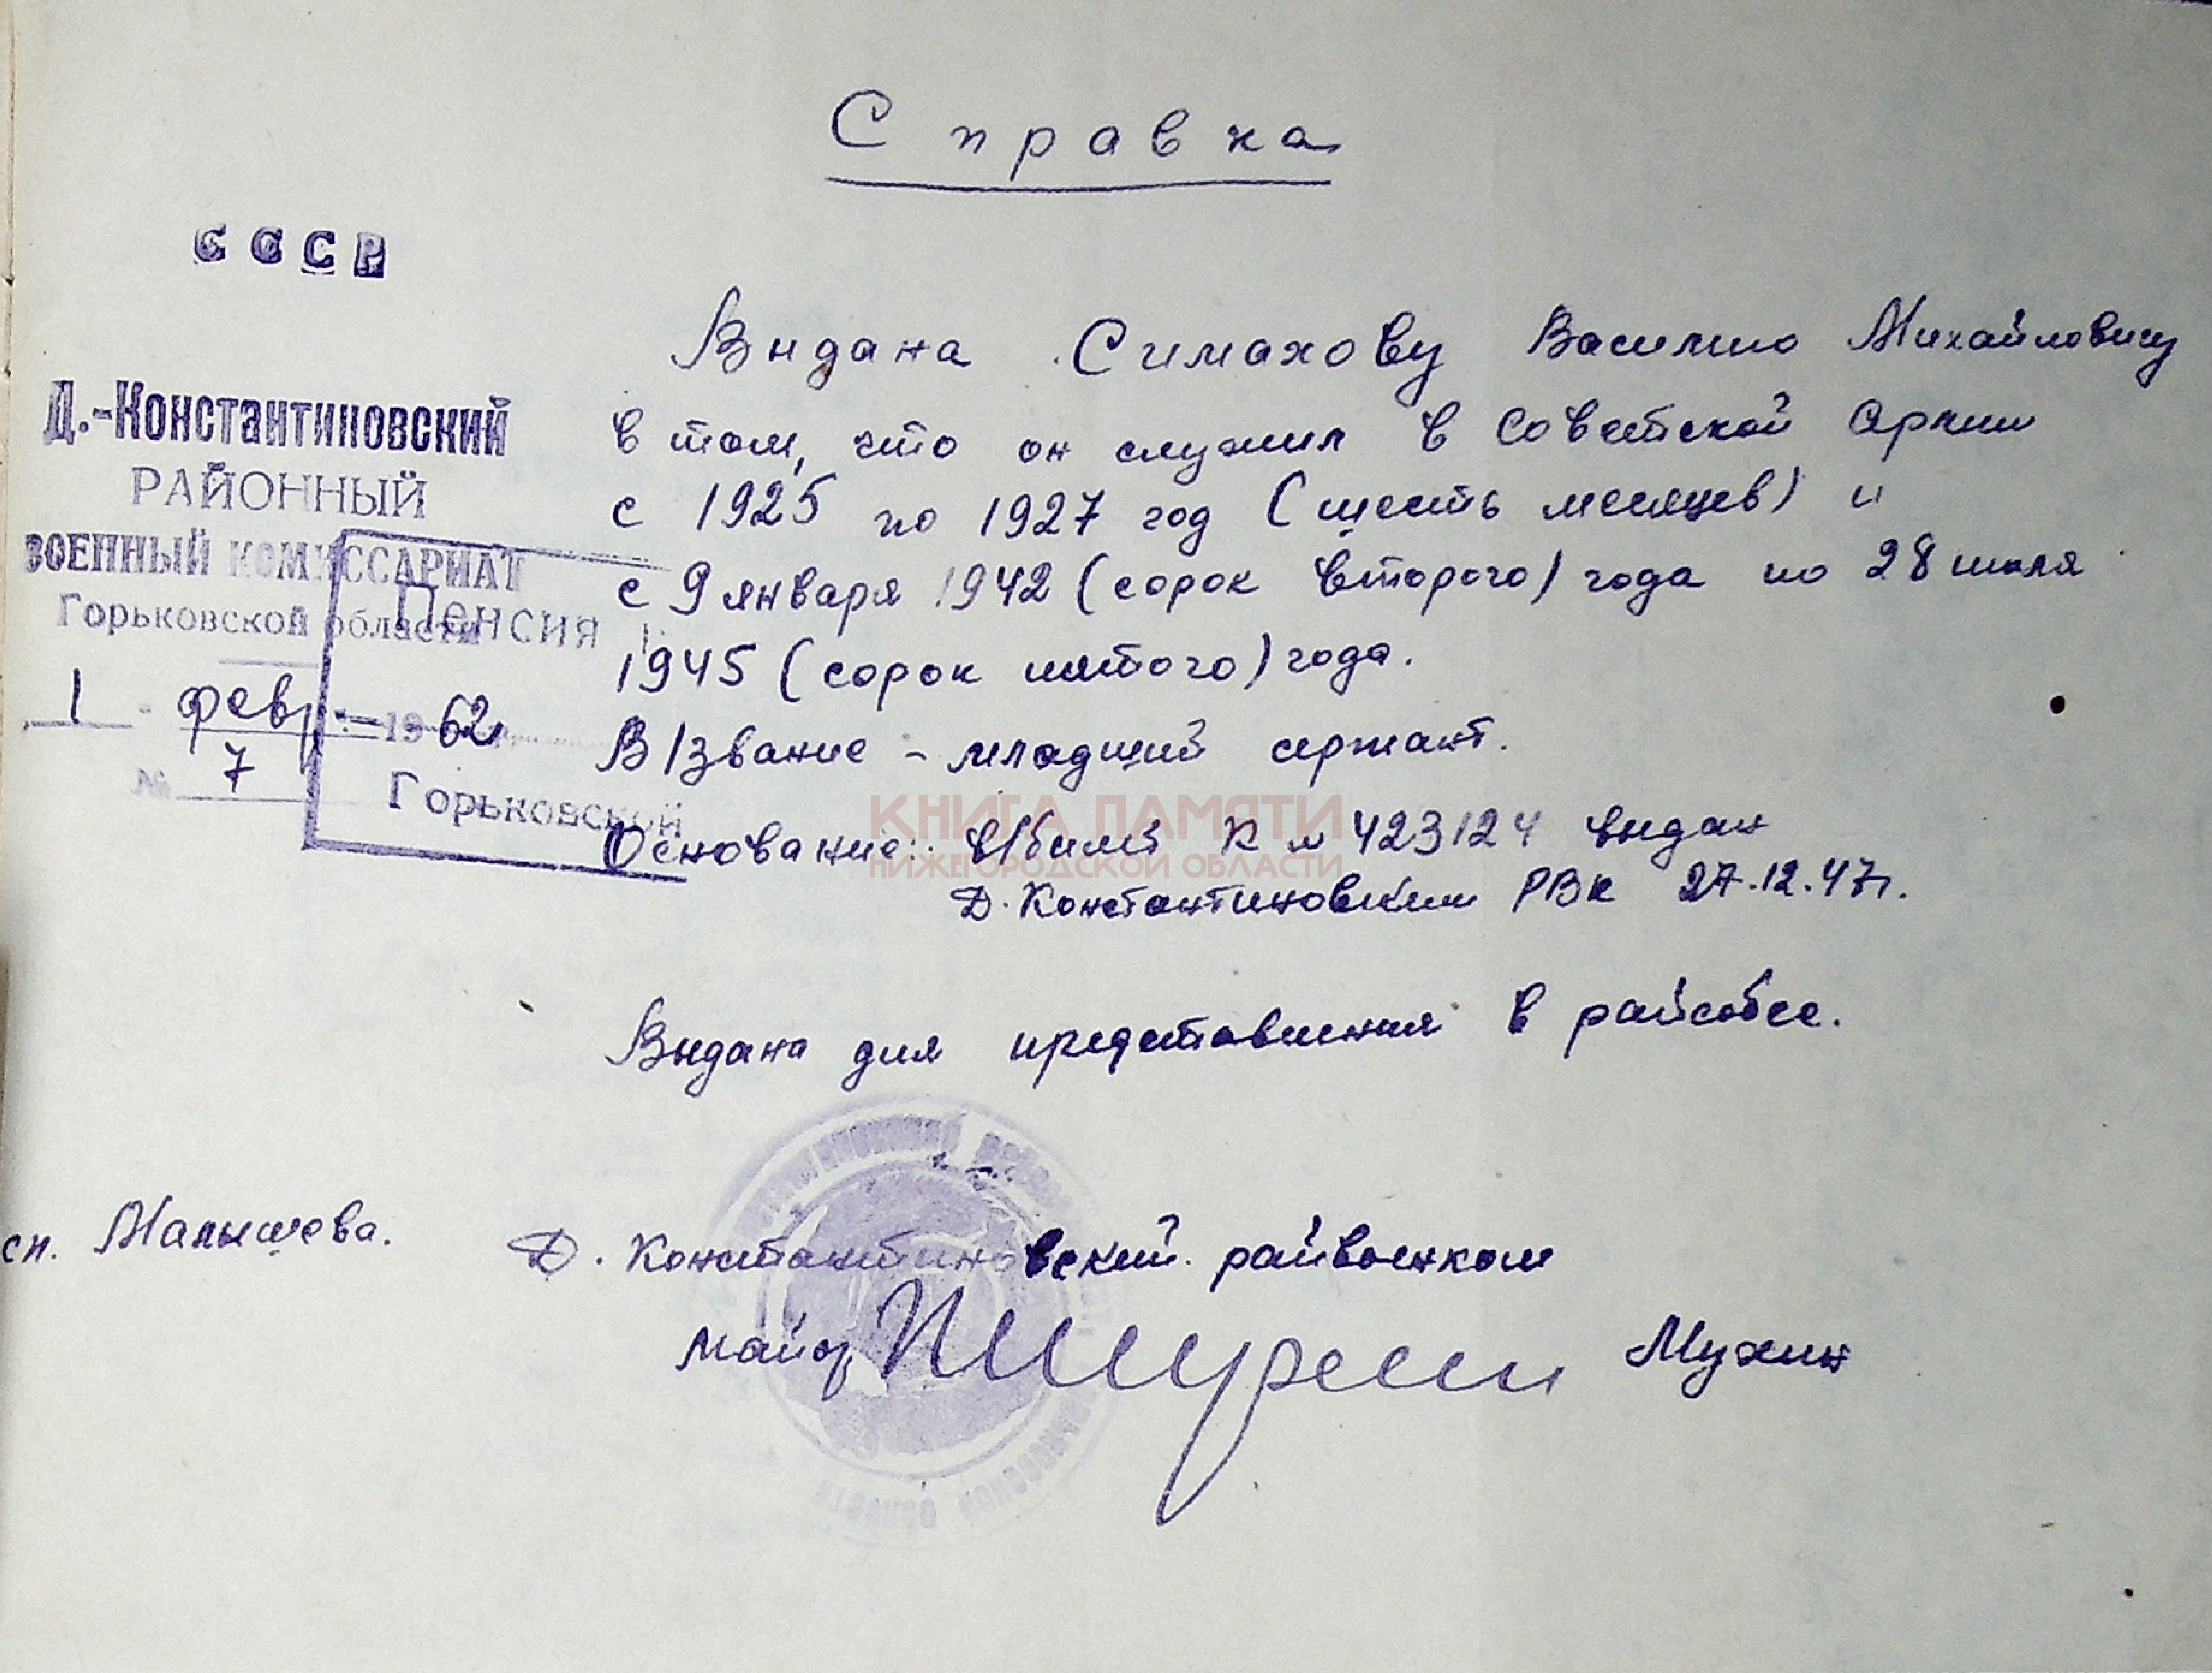 Справка
СССР
Д.-Константиновский
РАЙОННЫЙ
ВОЕННЫЙ КОМИССАРИАТ
Горьковской области
1 - февр. 1962
№ 7
Пенсия
Горьковской
Выдана Симахову Василию Михайловичу
в том, что он служил в Советской Армии
с 1925 по 1927 год (шесть месяцев) и
с 9 января 1942 (сорок второго) года по 28 июля
1945 (сорок пятого) года.
В/звание - младший сержант.
Основание: в/билет К № 423124 выдан
Д. Константиновским РВК 27.12.47г.
КНИГА ПАМЯТИ
НИЖЕГОРОДСКОЙ ОБЛАСТИ
Выдана для представления в райсобес.
сп. Малышева.
Д. Константиновский райвоенком
майор Мухин